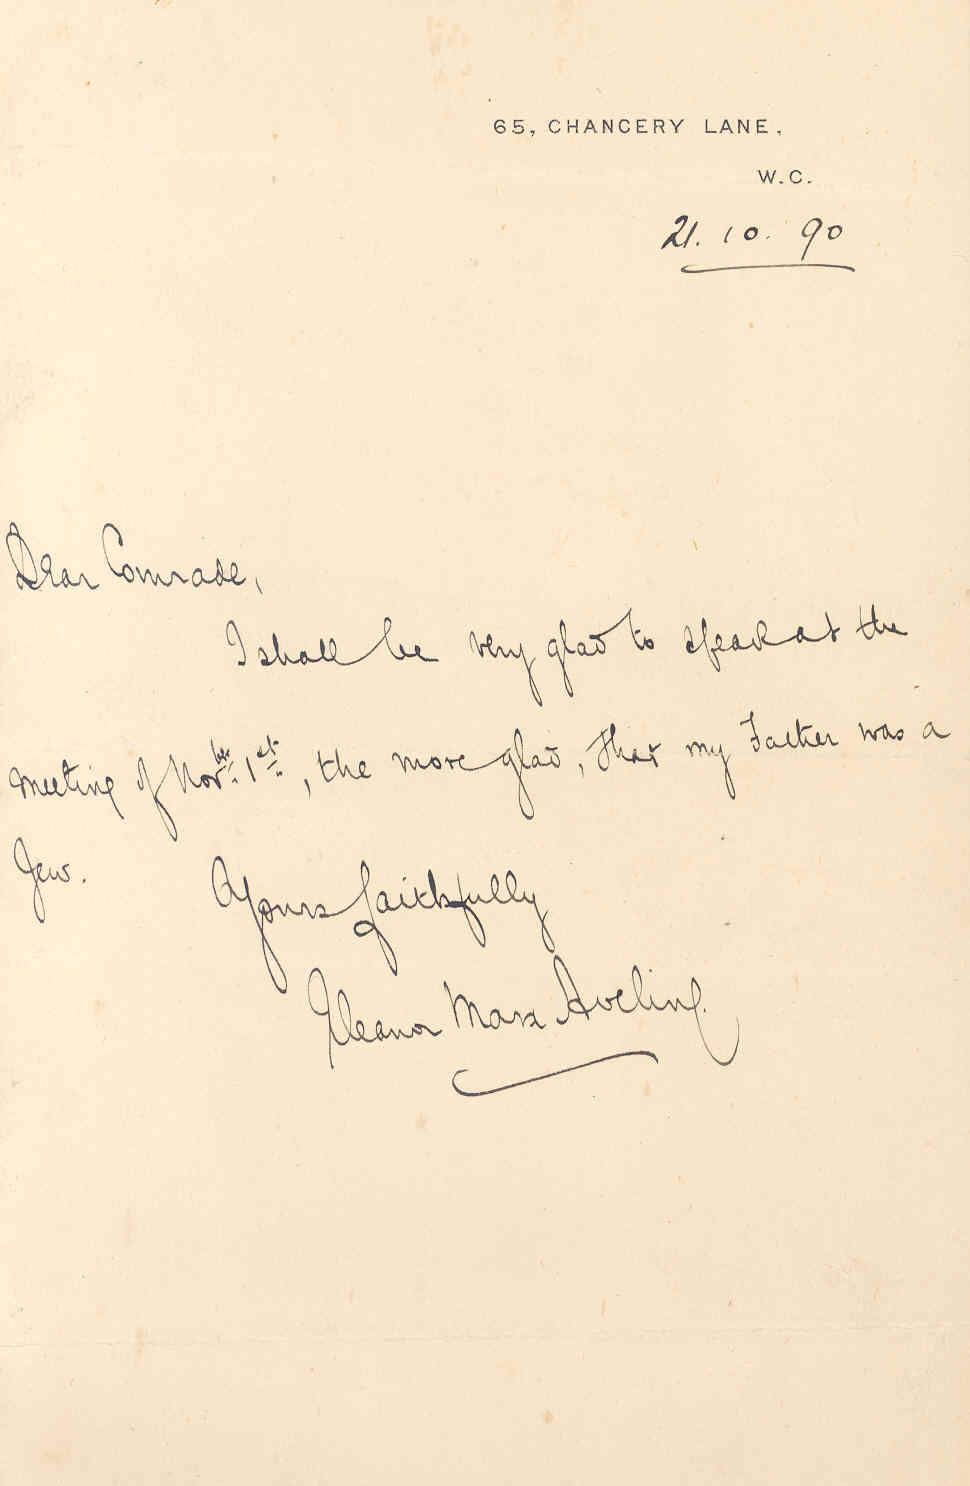 65, CHANCERY LANE,
W.C.
21. 10. 90
Dear Comrade,
I shall be very glad to speak at the
meeting of Novber. 1st., the more glad, that my Father was a
Jew.
Yours faithfully
Eleanor Marx Aveling.